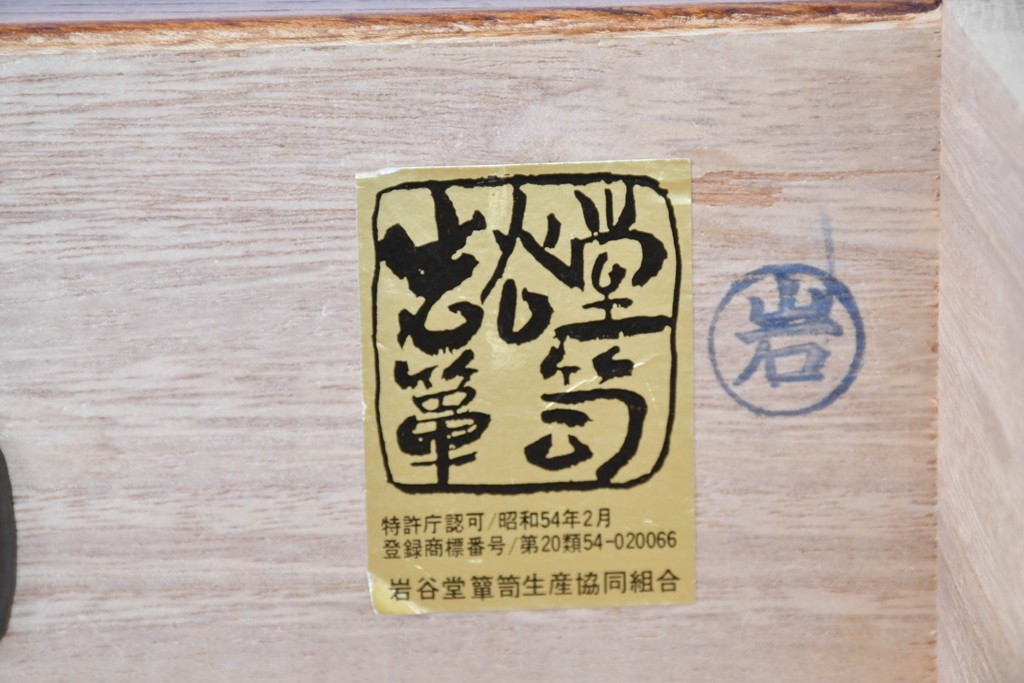 岩谷堂
簞笥
特許庁認可/昭和54年2月
登録商標番号/第20類54-020066
岩谷堂簞笥生産協同組合
岩